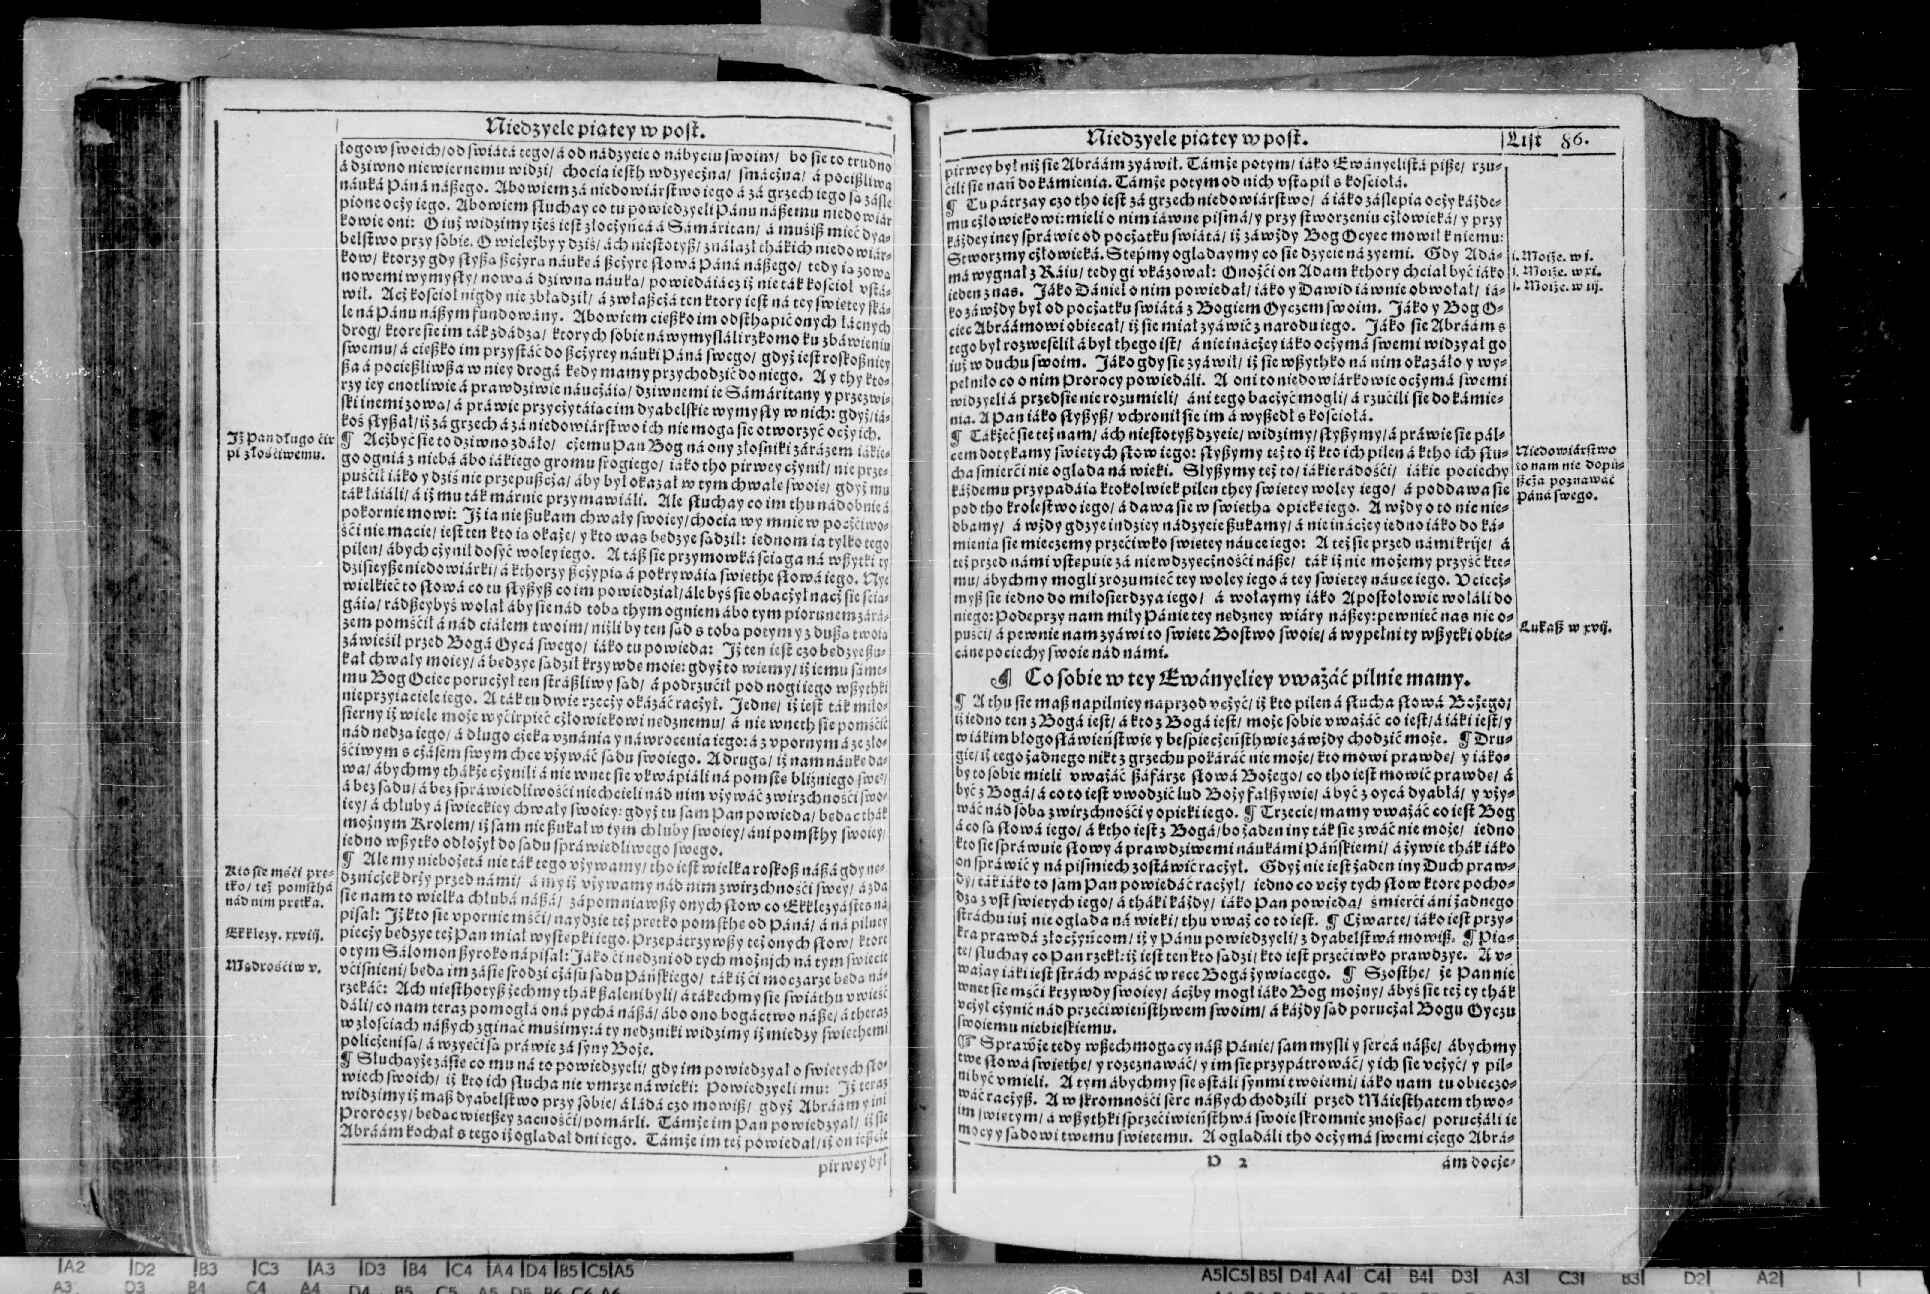 Niedzyele piątey w post.
łogow swoich/ od swiátá tego/ á od nádzyeie o nabyciu swoim/ bo sie to trudno
á dziwno niewiernemu widzi/ chocia iesth wdzyecżna/ smácżna/ á pocißliwa
náuká Páná náßego. Abowiem zá niedowiárstwo iego á zá grzech iego są záśle
pione ocży iego. Abowiem słuchay co tu powiedzyeli Pánu náßemu niedowiár
kowie oni: O iuż widzimy iżeś iest złocżyńcá á Sámáritan/ á musiß mieć dya-
belstwo przy sobie. O wieleżby y dziś/ ách niestotyß/ ználazł thákich niedowiár-
kow/ ktorzy gdy słyßą ßcżyrą náukę á ßcżyre słowá Páná nášego/ tedy ią zową
nowemi wymysły/ nową á dziwną náuką/ powiedáiącz iż nie ták kościoł vstá-
wił. Acż kościoł nigdy nie zbłądził/ á zwłaßcżá ten ktory iest ná tey swiętey ská-
le ná Pánu nášym fundowány. Abowiem cięßko im odsthąpić onych łácnych
drog/ ktore sie im ták zdádzą/ ktorych sobie náwymysláli rzkomo ku zbáwieniu
swemu/ á cięßko im przystáć do ßcżyrey náuki Páná swego/ gdyż iest roskoßniey
ßa á pocießliwßa w niey drogá kędy mamy przychodzić do niego. A y thy kto-
rzy iey cnotliwie á prawdziwie náucżáią/ dziwnemi ie Sámáritany y przezwi-
ski inemi zową/ á práwie przycżytáią im dyabelskie wymysły w nich: gdyż/ iá-
koś słyßał/ iż zá grzech á zá niedowiárstwo ich nie mogą sie otworzyć ocży ich.
¶ Acżbyć sie to dziwno zdáło/ cżemu Pan Bog ná ony złośniki zárázem iákie-
go ogniá z niebá ábo iákiego gromu srogiego/ iáko tho pirwey cżynił/ nie prze-
puścił iáko y dziś nie przepußcża/ áby był okazał w tym chwałę swoię/ gdyż mu
ták łáiáli/ á iż mu ták márnie przymawiáli. Ale słuchay co im thu nadobnie á
pokornie mowi: Iż ia nie ßukam chwały swoiey/ chocia wy mnie w pocżciwo-
ści nie macie/ iest ten kto ią okaże/ y kto was będzye sądził: iedno m ia tylko tego
pilen/ ábych cżynił dosyć woley iego. A táß sie przymowká ściąga ná wßytki ty
dzisieyße niedowiárki/ á kthorzy ßcżypią á pokrywáią swięthe słowá iego. Nye
wielkieć to słowá co tu słyßyß co im powiedział/ ále byś sie obacżył nacż sie ścią-
gáią/ radßeybyś wolał áby sie nád tobą thym ogniem ábo tym piorunem zárá-
zem pomścił á nád ciáłem twoim/ niżli by ten sąd s tobą potym y z dußą twoią
záwiesił przed Bogá Oycá swego/ iáko tu powieda: Iż ten iest czo będzye ßu-
kał chwały moiey/ á będzye sądził krzywdę moię: gdyż to wiemy/ iż iemu same-
mu Bog Ociec porucżył ten stráßliwy sąd/ á podrzucił pod nogi iego wßythki
nieprzyiaciele iego. A ták tu dwie rzecży okázáć racżył. Iedne/ iż iest ták miło-
sierny iż wiele może wycirpieć cżłowiekowi nędznemu/ á nie wneth sie pomścić
nád nędzą iego/ á długo cżeka vznánia y náwrocenia iego: á z vpornym á ze zło-
ściwym s cżásem swym chce vżywáć sądu swoiego. A druga/ iż nam náukę dá-
wa/ ábychmy thákże cżynili á nie wnet sie vkwápiáli ná pomstę bliźniego swe-/
á bez sądu/ á bez spráwiedliwości niechcieli nád nim vżywáć zwirzchności swo-
iey/ á chluby á swieckiey chwały swoiey: gdyż tu sam Pan powieda/ będąc thák
możnym Krolem/ iż sam nie ßukał w tym chluby swoiey/ áni pomsthy swoiey/
iedno wßytko odłożył do sądu spráwiedliwego swego.
¶ Ale my niebożętá nie ták tego vżywamy/ tho iest wielka roskoß náßá gdy nę-
dznicżek drży przed námi/ á my iż vżywamy nád nim zwirzchności swey/ á zda
sie nam to wielka chlubá náßá/ zápomniawßy onych słow co Ekklezyástes na
pisał: Iż kto sie vpornie mści/ naydzie też prętko pomsthę od Páná/ á ná pilney
piecży będzye też Pan miał występki iego. Przepátrzywßy też onych słow/ ktore
o tym Sálomon ßyroko nápisał: Iáko ci nędzni od tych możnych ná tym swiecie
vciśnieni/ będą im zásię srodzi cżásu sądu Páńskiego/ ták iż ci mocżarze będą ná-
rzekáć: Ach niesthotyß żechmy thák ßaleni byli/ á takechmy sie swiáthu vwieść
dáli/ co nam teraz pomogłá oná pychá náßá/ ábo ono bogáctwo náße/ á theraz
w złościach náßych zginąć musimy: á ty nędzniki widzimy iż między swięthemi
policżeni są/ á wzyęci są práwie zá syny Boże.
¶ Słuchayże zásię co mu ná to powiedzyeli/ gdy im powiedzyał o swiętych sło-
wiech swoich/ iż kto ich słucha nie vmrze ná wieki: Powiedzyeli mu: Iż teraz
widzimy iż maß dyabelstwo przy sobie/ á ládá czo mowiß/ gdyż Abráám y ini
Proroczy/ będąc więtßey zacności/ pomárli. Támże im Pan powiedzyał/ iż sie
Abráám kochał s tego iż oglądał dni iego. Támże im też powiedał/ iż on ießcże
pirwey był
Iż Pan długo cir
pi złościwemu.
Kto sie mści prę-
tko/ też pomsthá
nád nim prętka.
Ekklezy. xxviij.
Mądrości w v.
Niedzyele piątey w post.
List 86.
pirwey był niż sie Abráám zyáwił. Támże potym/ iáko Ewányelistá piße/ rzu-
cili sie nań do kámienia. Támże potym od nich vstąpił s kościołá.
¶ Tu pátrzay czo tho iest zá grzech niedowiárstwo/ á iáko záślepia ocży káżde-
mu cżłowiekowi: mieli o nim iáwne pismá/ y przy stworzeniu cżłowieká/ y przy
káżdey iney spráwie od pocżątku swiátá/ iż záwżdy Bog Ocyec mowił k niemu:
Stworzmy cżłowieká. Stępmy oglądaymy co sie dzyeie ná zyemi. Gdy Adá-
má wygnał z Ráiu/ tedy gi vkázował: Onożci on Adam kthory chciał być iáko
ieden z nas. Iáko Dániel o nim powiedał/ iáko y Dawid iáwnie obwołał/ iá-
ko záwżdy był od pocżątku swiátá z Bogiem Oyczem swoim. Iáko y Bog O-
ciec Abráámowi obiecał/ iż sie miał zyáwić z narodu iego. Iáko sie Abráám s
tego był rozweselił á był thego ist/ á nie inácżey iáko ocżymá swemi widzyał go
iuż w duchu swoim. Iáko gdy sie zyáwił/ iż sie wßythko ná nim okazáło y wy-
pełniło co o nim Prorocy powiedáli. A oni to niedowiárkowie ocżymá swemi
widzyeli á przedsię nie rozumieli/ áni tego bacżyć mogli/ á rzucili sie do kámie-
nia. A Pan iáko słyßyß/ vchronił sie im á wyßedł s kościołá.
¶ Tákżeć sie też nam/ ách niestotyß dzyeie/ widzimy/ słyßymy/ á práwie sie pál-
cem dotykamy swiętych słow iego: słyßymy też to iż kto ich pilen á ktho ich słu-
cha śmierći nie ogląda ná wieki. Słyßymy też to/ iákie rádości/ iákie pociechy
káżdemu przypadáią ktokolwiek pilen they swiętey woley iego/ á poddawa sie
pod tho krolestwo iego/ á dawa sie w swiętha opiekę iego. A wżdy o to nic nie-
dbamy/ á wżdy gdzye indziey nádzyeie ßukamy/ á nie inácżey iedno iáko do ká-
mienia sie miecemy przećiwko swiętey náuce iego: A też sie przed námi krije/ á
też przed námi vstępuie zá niewdzyęcżności náße/ ták iż nie możemy przyść kte-
mu/ ábychmy mogli zrozumieć tey woley iego á tey swiętey náuce iego. Vciecż-
myß sie iedno do miłosierdzya iego/ á wołaymy iáko Apostołowie wołáli do
niego: Podeprzy nam miły Pánie tey nędzney wiáry náßey: pewnieć nas nie o-
puści/ á pewnie nam zyáwi to swięte Bostwo swoie/ á wypełni ty wßytki obie-
cáne pociechy swoie nád námi.
¶ Co sobie w tey Ewányeliey vważáć pilnie mamy.
¶ A thu sie maß napilniey naprzod vcżyć/ iż kto pilen á słucha słowá Bożego/
iż iedno ten z Bogá iest/ á kto z Bogá iest/ może sobie vważáć co iest/ á iáki iest/ y
w iákim błogosłáwieństwie y bespiecżeństhwie záwżdy chodzić może. ¶ Dru-
gie/ iż tego żadnego nikt z grzechu pokáráć nie może/ kto mowi prawdę/ y iáko-
by to sobie mieli vważáć ßáfárze słowá Bożego/ co tho iest mowić prawdę/ á
być z Bogá/ á co to iest vwodzić lud Boży fałßywie/ á być z oycá dyabłá/ y vży-
wáć nád sobą zwirzchności y opieki iego. ¶ Trzecie/ mamy vważáć co iest Bog
á co są słowá iego/ á ktho iest z Bogá/ bo żaden iny ták sie zwáć nie może/ iedno
kto sie spráwuie słowy á prawdziwemi náukámi Páńskiemi/ á żywie thák iáko
on spráwić y ná piśmiech zostáwić racżył. Gdyż nie iest żaden iny Duch praw-
dy/ ták iáko to sam Pan powiedáć racżył/ iedno co vcży tych słow ktore pocho-
dzą z vst swiętych iego/ á tháki káżdy/ iáko Pan powieda/ śmierći áni żadnego
stráchu iuż nie ogląda ná wieki/ thu vważ co to iest. ¶ Cżwarte/ iáko iest przy-
kra prawdá złocżyńcom/ iż y Pánu powiedzyeli/ z dyabelstwá mowiß. ¶ Pią-
te/ słuchay co Pan rzekł: iż iest ten kto sądzi/ kto iest przećiwko prawdzye. A v-
ważay iáki iest strách wpáść w ręce Bogá żywiącego. ¶ Szosthe/ że Pan nie
wnet sie mści krzywdy swoiey/ ácżby mogł iáko Bog możny/ ábyś sie też ty thák
vcżył cżynić nád przećiwieństhwem swoim/ á káżdy sąd porucżał Bogu Oyczu
swoiemu niebieskiemu.
¶ Sprawże tedy wßechmogący náß Pánie/ sam myśli y sercá náße/ ábychmy
twe słowá swięthe/ y rozeznawáć/ y im sie przypátrowáć/ y ich sie vcżyć/ y pil-
ni być vmieli. A tym ábychmy sie sstáli synmi twoiemi/ iáko nam tu obieczo-
wáć racżyß. A w skromności serc náßych chodzili przed Máiesthatem thwo-
im swiętym/ á wßythki sprzećiwieństhwá swoie skromnie znoßąc/ porucżáli ie
mocy y sądowi twemu swiętemu. A oglądáli tho ocżymá swemi cżego Abrá-
P 2
ám docże-
i. Moiże. w i.
i. Moiże. w xi.
i. Moiże. w iij.
Niedowiárstwo
to nam nie dopu-
ßcża poznawáć
Páná swego.
Lukaß w xvij.